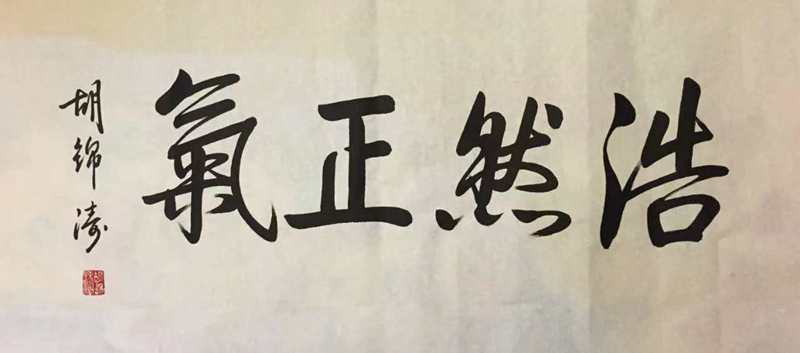 浩然正氣
胡錦濤